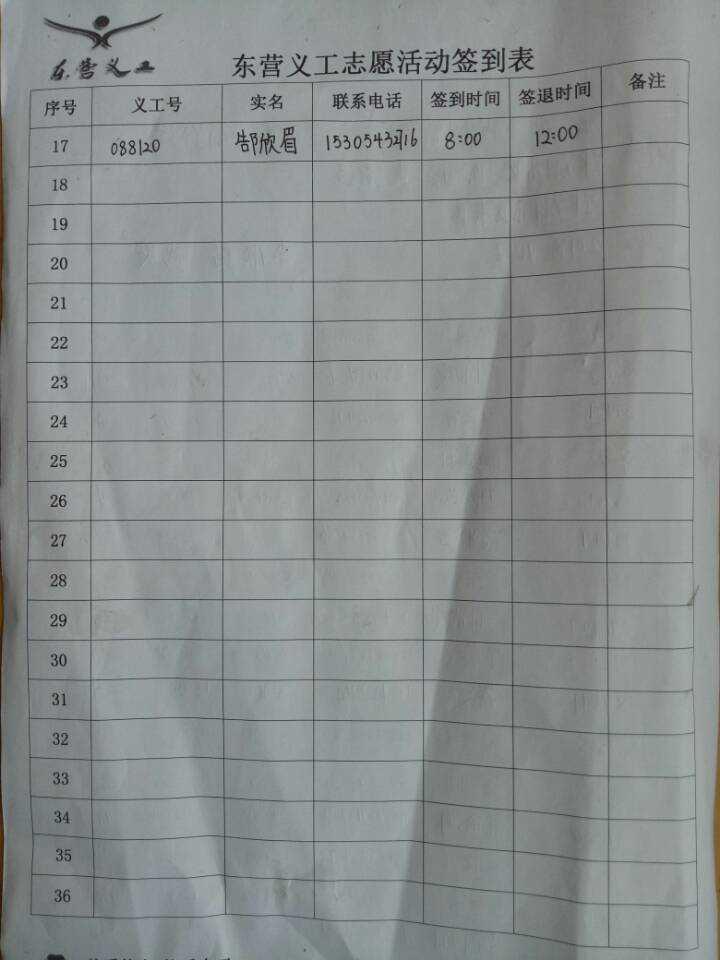 东营义工
东营义工志愿活动签到表
序号 义工号 实名 联系电话 签到时间 签退时间 备注
17 088120 郜欣眉 8:00 12:00
18
19
20
21
22
23
24
25
26
27
28
29
30
31
32
33
34
35
36